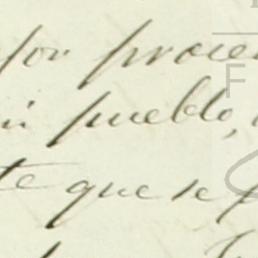 por proce
mi pueblo,
te que se p